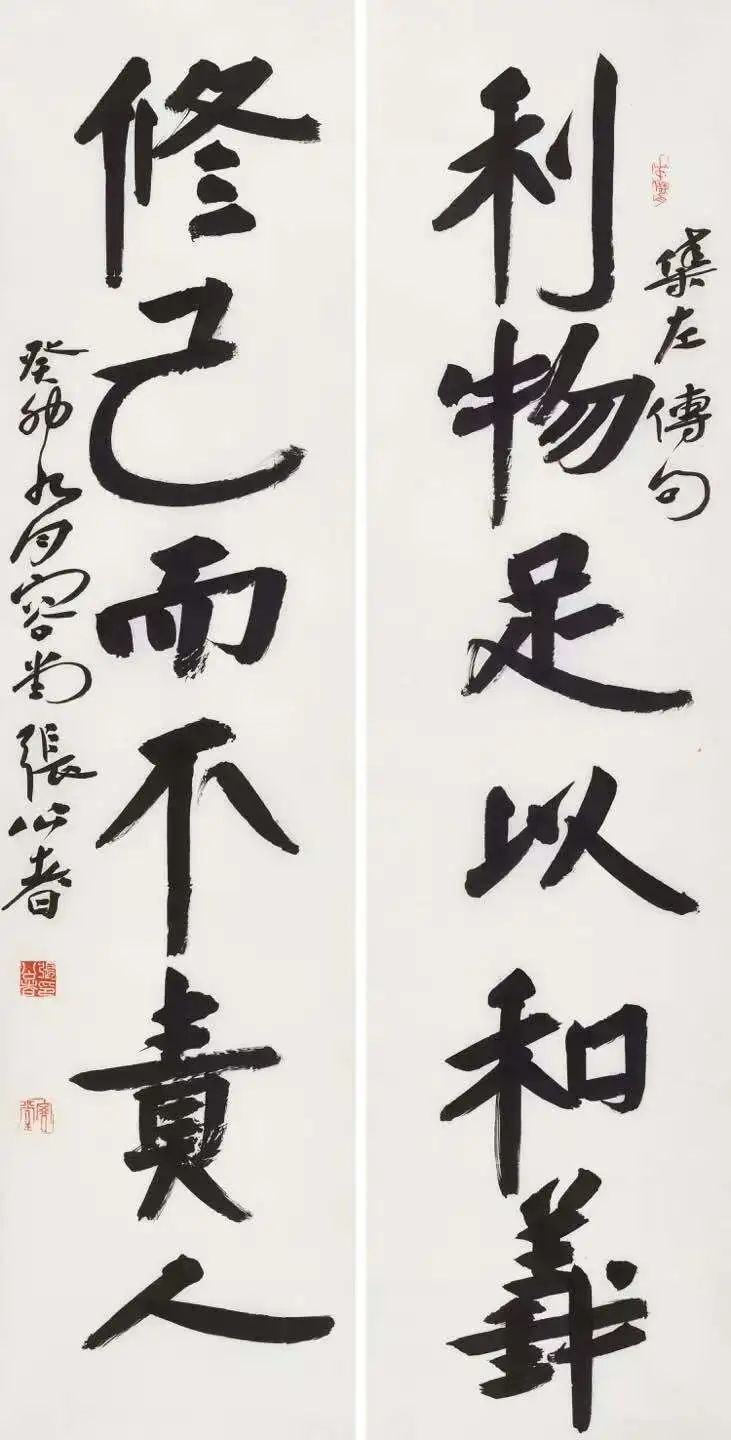 集左傳句
利物足以和義
修己而不責人
癸卯九月容堂張公者